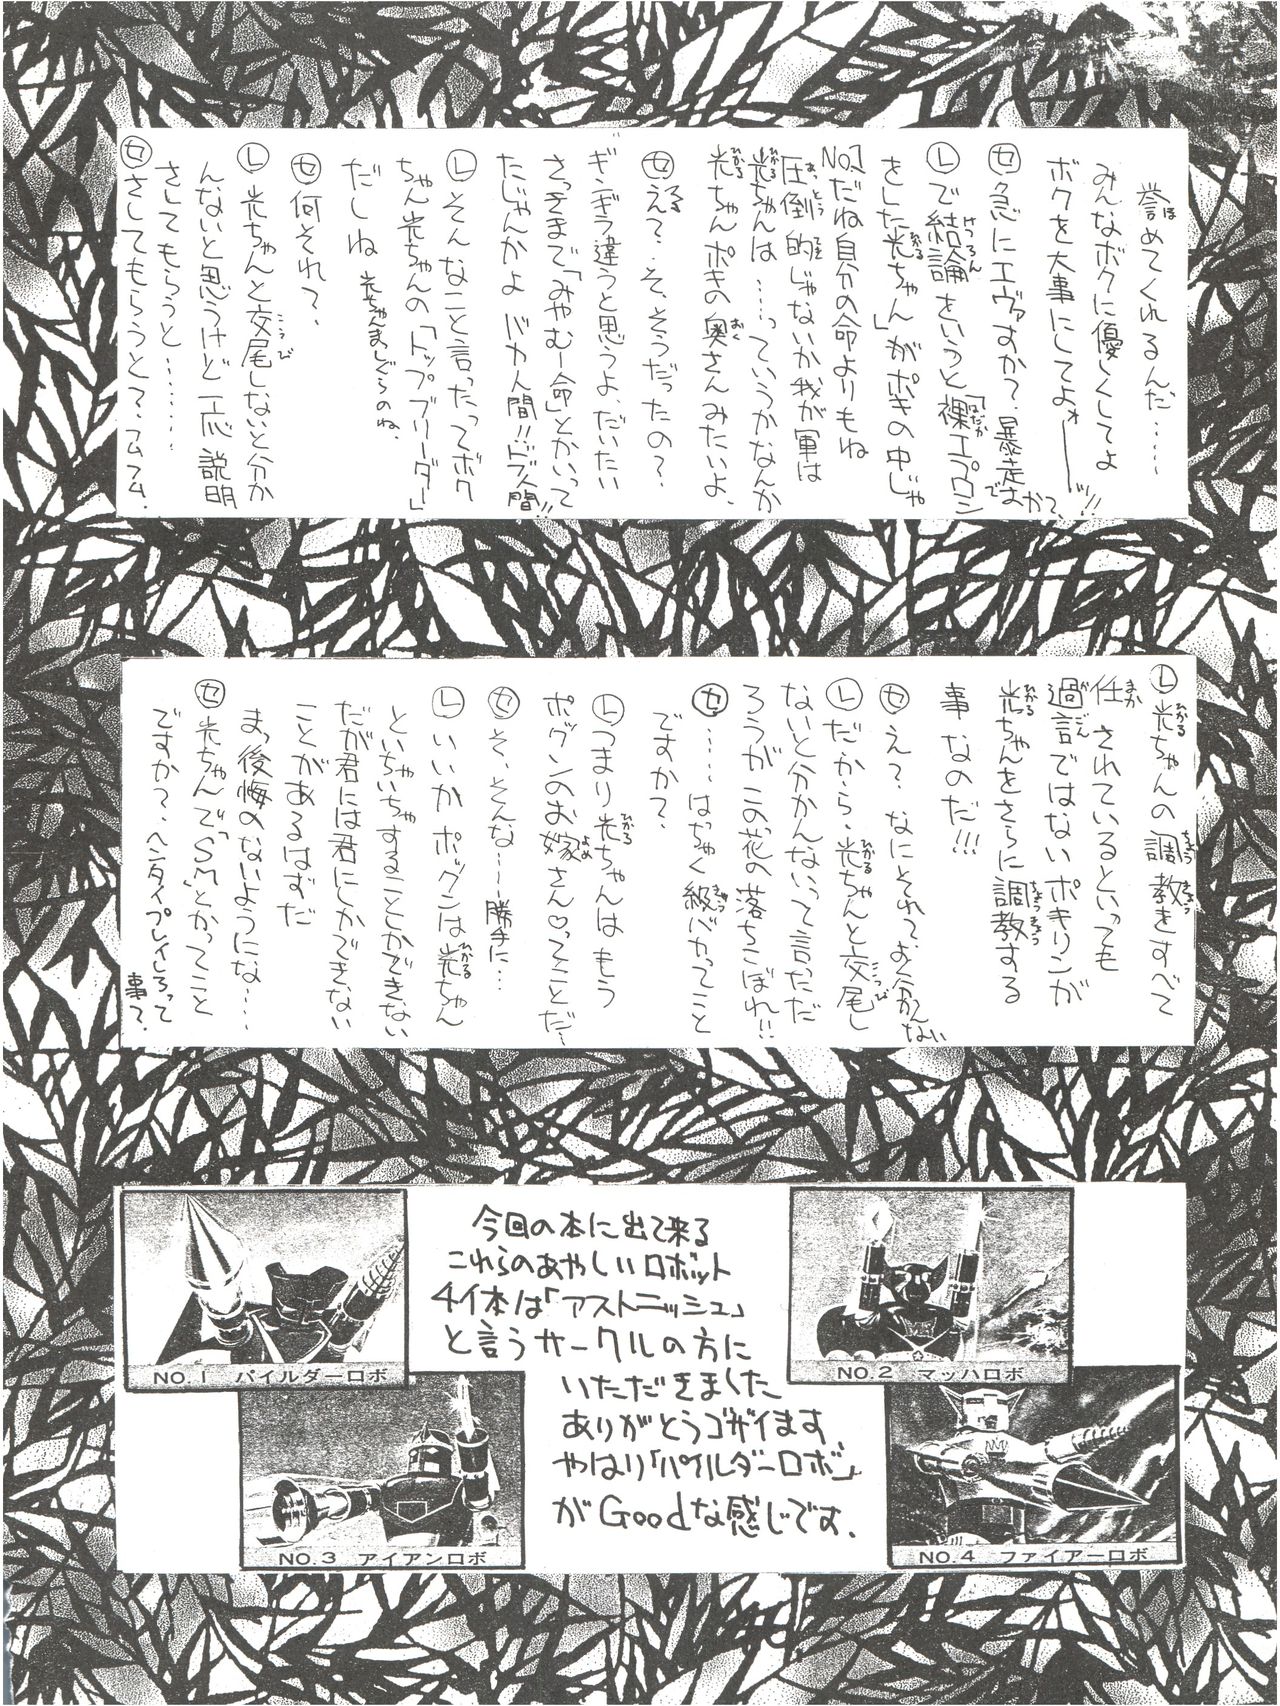 誉めてくれるんだ……
みんなボクに優しくしてよ
ボクを大事にしてよォ――ッ!!
セ 急にエヴァすか?暴走すか?
レ で結論をいうと「裸エプロン
をした光ちゃん」がポキの中じゃ
NO.1だね自分の命よりもね
圧倒的じゃないか我が軍は
光ちゃんは……っていうかなんか
光ちゃんポキの奥さんみたいよ、
セ え?そ、そうだったの?
ぎ、ギラ違うと思うよ、だいたい
さっきまで「みやむー命」とかいって
たじゃんかよ バカ人間!!ドブ人間!!
レ そんなこと言ったってボク
ちゃん光ちゃんの「トップブリーダー」
だしね
セ 何それ?
レ 光ちゃんと交尾しないと分か
んないと思うけど一応説明
さしてもらうと………
セ さしてもらうと?フムフム.
レ 光ちゃんの調教をすべて
任されているといっても
過言ではないポキリンが
光ちゃんをさらに調教する
事なのだ!!!
セ え?なにそれ?よく分かんない
レ だから、光ちゃんと交尾し
ないと分かんないって言っただ
ろうがこの花の落ちこぼれ!!
セ ……はぢゃく級バカってこと
ですか?
レ つまり光ちゃんはもう
ポックンのお嫁さん♡ってことだ〜
セ そ、そんな〜勝手に…
レ いいかポックンは光ちゃん
といちゃいちゃすることしかできない
だが君には君にしかできない
ことがあるはずだ
まっ後悔のないようにな……
セ 光ちゃんで"SM"とかってこと
ですか?ヘンタイプレイしろって
事?
今回の本に出て来る
これらのあやしいロボット
4体は「アストニッシュ」
と言うサークルの方に
いただきました
ありがとうゴザイます
やはり「パイルダーロボ」
がGoodな感じです.
NO.1 パイルダーロボ
NO.2 マッハロボ
NO.3 アイアンロボ
NO.4 ファイアーロボ